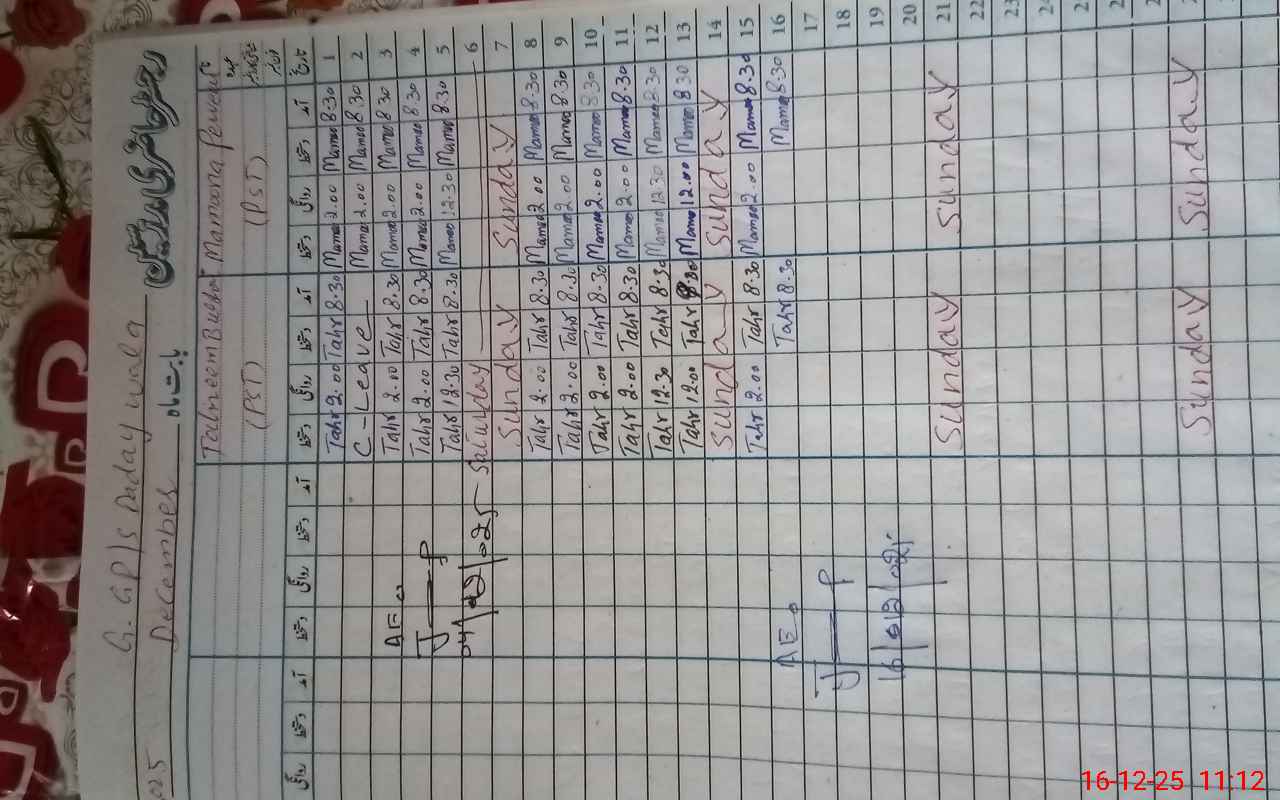 G. GP/S Daday wala
رجسٹر حاضری مدرسین
December بابت ماہ
Mamoona Perveen
(PST)
(PST)
تاریخ آمد دستخط روانگی دستخط آمد دستخط روانگی دستخط آمد دستخط روانگی دستخط آمد دستخط روانگی
1 8.30 Mamoo 2.00 Mamoo 8.30 Tahr 2.00 Tahr
2 8.30 Mamoo 2.00 Mamoo C-Leave
3 8.30 Mamoo 2.00 Mamoo 8.30 Tahr 2.00 Tahr
4 8.30 Mamoo 2.00 Mamoo 8.30 Tahr 2.00 Tahr
5 8.30 Mamoo 12.30 Mamoo 8.30 Tahr 12.30 Tahr
6 Saturday
7 Sunday Sunday
8 8.30 Mamoo 2.00 Mamoo 8.30 Tahr 2.00 Tahr
9 8.30 Mamoo 2.00 Mamoo 8.30 Tahr 2.00 Tahr
10 8.30 Mamoo 2.00 Mamoo 8.30 Tahr 2.00 Tahr
11 8.30 Mamoo 2.00 Mamoo 8.30 Tahr 2.00 Tahr
12 8.30 Mamoo 12.30 Mamoo 8.30 Tahr 12.30 Tahr
13 8.30 Mamoo 12.00 Mamoo 8.30 Tahr 12.00 Tahr
14 Sunday Sunday
15 8.30 Mamoo 2.00 Mamoo 8.30 Tahr 2.00 Tahr
16 8.30 Mamoo 8.30 Tahr
17
18
19
20
21 Sunday Sunday
22
23
24
Sunday Sunday
AEO
04/12/025
AEO
16/012/025
16-12-25 11:12